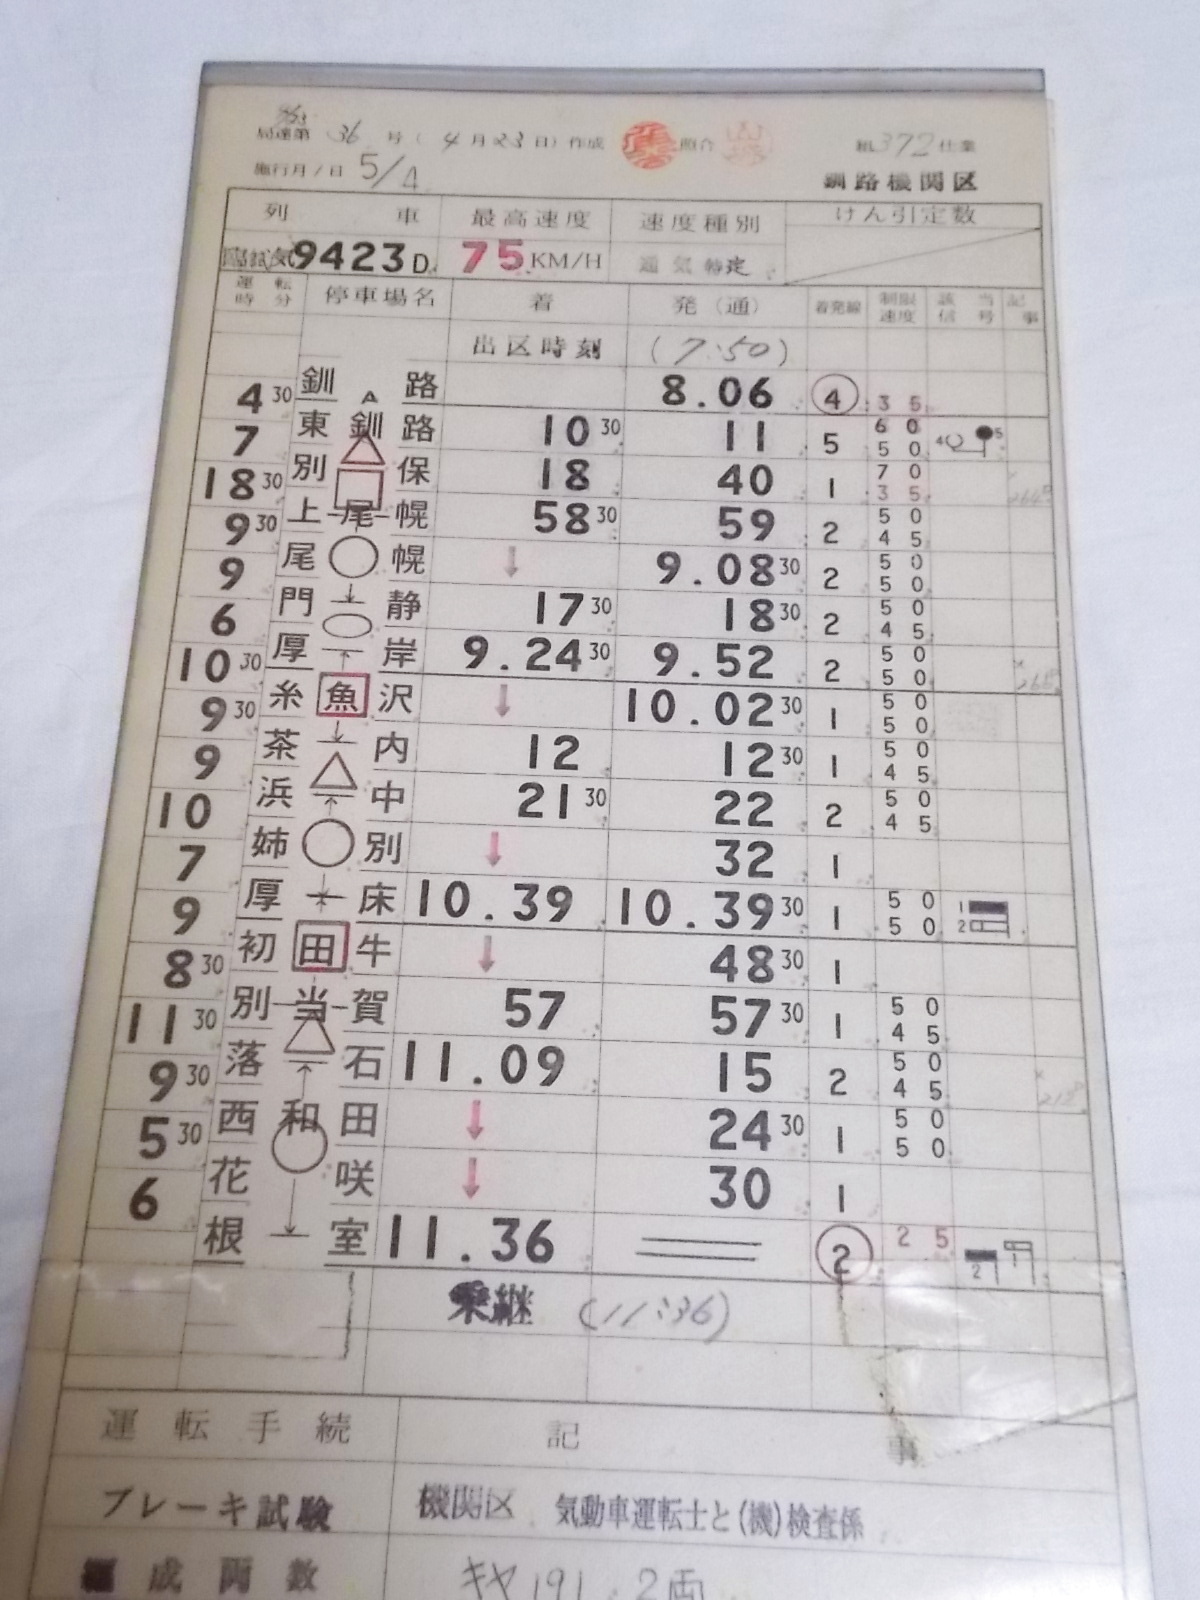 局達第 36 号 ( 4 月 23 日) 作成 照介 組 372 仕業
施行月/日 5/4 釧路機関区
列 車 最高速度 速度種別 けん引定数
臨試気9423D. 75 KM/H 通気特定
運転時分 停車場名 着 発 (通) 着発線 制限速度 該当信号 記事
出区時刻 (7:50)
釧路 8.06 4 35
4 30
東釧路 10 30 11 5 60 50 4 5
7
別保 18 40 1 70 35
18 30
上尾幌 58 30 59 2 50 45
9 30
尾幌 ↓ 9.08 30 2 50 50
9
門静 17 30 18 30 2 50 45
6
厚岸 9.24 30 9.52 2 50 50
10 30
糸魚沢 ↓ 10.02 30 1 50 50
9 30
茶内 12 12 30 1 50 45
9
浜中 21 30 22 2 50 45
10
姉別 ↓ 32 1
7
厚床 10.39 10.39 30 1 50 50 1 2
9
初田牛 ↓ 48 30 1
8 30
別当賀 57 57 30 1 50 45
11 30
落石 11.09 15 2 50 45
9 30
西和田 ↓ 24 30 1 50 50
5 30
花咲 ↓ 30 1
6
根室 11.36 2 25 2 1
乗継 (11:36)
運転手続 記 事
ブレーキ試験 機関区 気動車運転士と(機)検査係
編成両数 キヤ191.2両